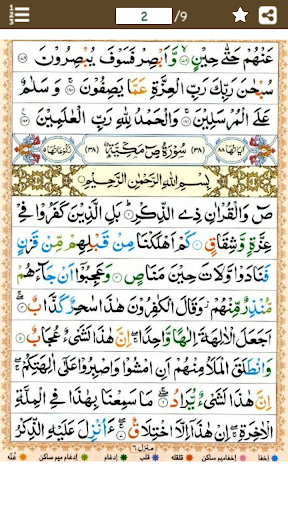 2 /9
عَنۡهُمۡ حَتّٰى حِيۡنٍۙ‏ ﴿۱۷۸﴾ وَّاَبۡصِرۡ فَسَوۡفَ يُبۡصِرُوۡنَ‏ ﴿۱۷۹﴾
سُبۡحٰنَ رَبِّكَ رَبِّ الۡعِزَّةِ عَمَّا يَصِفُوۡنَۚ‏ ﴿۱۸۰﴾ وَسَلٰمٌ
عَلَى الۡمُرۡسَلِيۡنَۚ‏ ﴿۱۸۱﴾ وَالۡحَمۡدُ لِلّٰهِ رَبِّ الۡعٰلَمِيۡنَ‏ ﴿۱۸۲﴾
اٰيَاتُهَا ٨٨ (٣٨) سُوۡرَةُ صٓ مَكِّيَّةٌ (٣٨) رُكُوۡعَاتُهَا ٥
بِسۡمِ اللهِ الرَّحۡمٰنِ الرَّحِيۡمِ
صٓ وَالۡقُرۡاٰنِ ذِى الذِّكۡرِؕ‏ ﴿۱﴾ بَلِ الَّذِيۡنَ كَفَرُوۡا فِىۡ
عِزَّةٍ وَّشِقَاقٍ‏ ﴿۲﴾ كَمۡ اَهۡلَكۡنَا مِنۡ قَبۡلِهِمۡ مِّنۡ قَرۡنٍ
فَنَادَوْا وَّلَاتَ حِيۡنَ مَنَاصٍ‏ ﴿۳﴾ وَعَجِبُوۡۤا اَنۡ جَآءَهُمۡ
مُّنۡذِرٌ مِّنۡهُمۡ وَقَالَ الۡكٰفِرُوۡنَ هٰذَا سٰحِرٌ كَذَّابٌ ۖۚ‏ ﴿۴﴾
اَجَعَلَ الۡاٰلِهَةَ اِلٰهًا وَّاحِدًا ۖۚ اِنَّ هٰذَا لَشَىۡءٌ عُجَابٌ‏ ﴿۵﴾
وَانْطَلَقَ الۡمَلَاُ مِنۡهُمۡ اَنِ امۡشُوۡا وَاصۡبِرُوۡا عَلٰٓى اٰلِهَتِكُمۡ ۖۚ
اِنَّ هٰذَا لَشَىۡءٌ يُّرَادُ ۖۚ‏ ﴿۶﴾ مَا سَمِعۡنَا بِهٰذَا فِى الۡمِلَّةِ
الۡاٰخِرَةِ ۖۚ اِنۡ هٰذَاۤ اِلَّا اخۡتِلَاقٌ ۖۚ‏ ﴿۷﴾ ءَاُنۡزِلَ عَلَيۡهِ الذِّكۡرُ
منزل ٦
اخفا اخفامیم ساکن قلقله قلب ادغام ادغام میم ساکن غُنّه